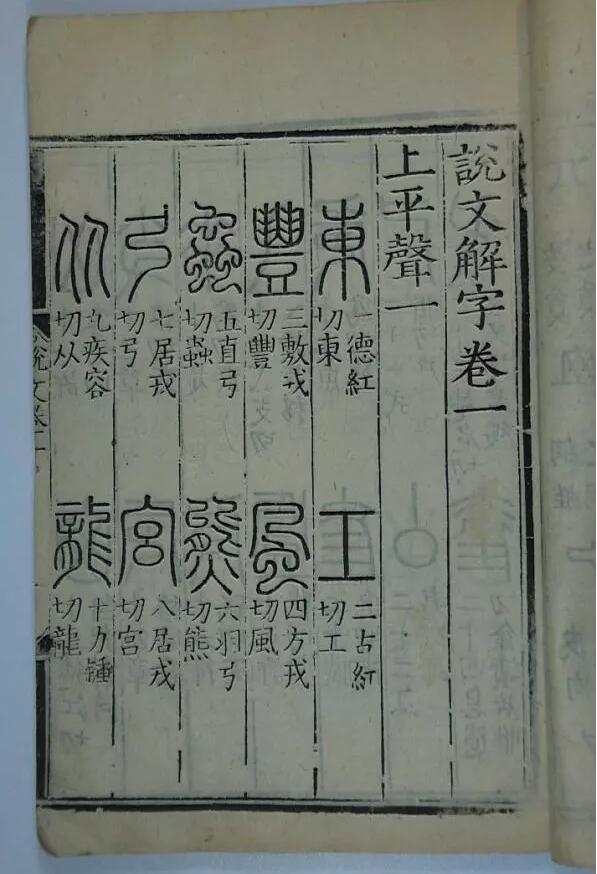 說文解字卷一
上平聲一
東
一德紅
切東
工
二古紅
切工
豐
三敷戎
切豐
風
四方戎
切風
蟲
五直弓
切蟲
熊
六羽弓
切熊
弓
七居戎
切弓
宮
八居戎
切宮
从
九疾容
切从
龍
十力鍾
切龍
說文卷一